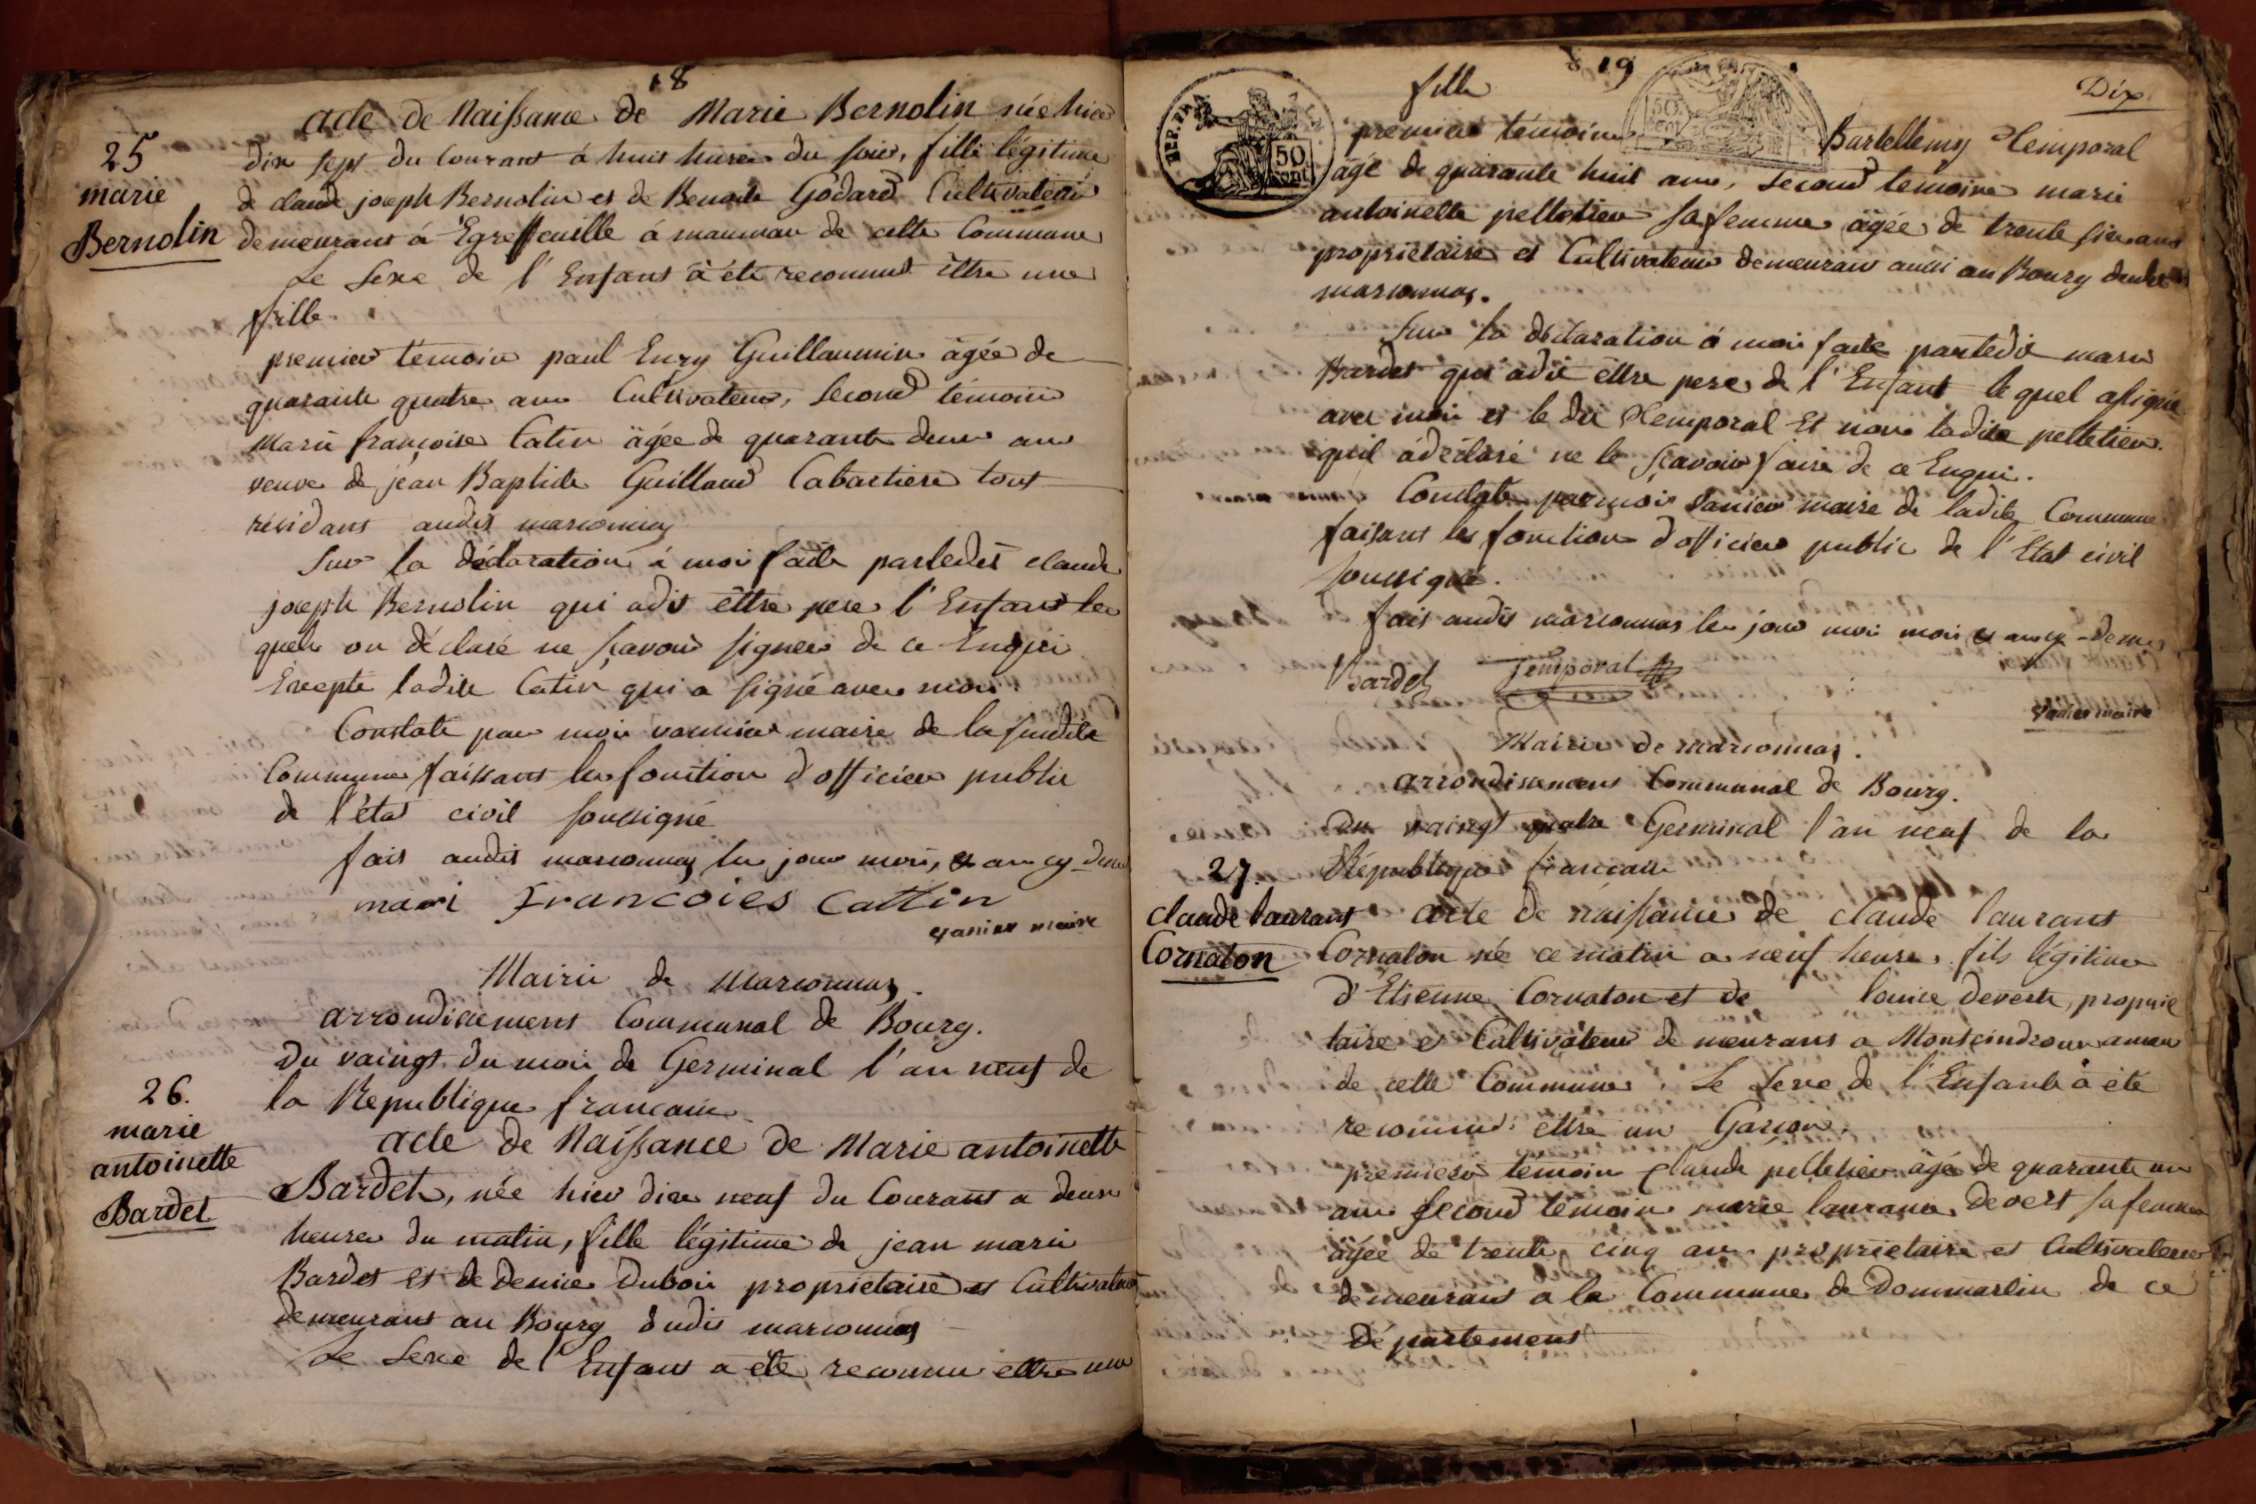 18
acte de Naissance de Marie Bernolin née hier
25
marie
Bernolin
dix sept du Courant á huit heures du soir, fille légitime
de claude joseph Bernolin et de Benoite Gödard Cultivateur
demeurant á Egreffeuille á mauman de cette Commune
Le Sexe de l'Enfant á été reconnud êttre une
fille.
premier témoin paul Enry Guillaumin âgée de
quarante quatre ans Cultivateur, Second témoin
Marie françoise Catin âgée de quarante deux ans
veuve de jean Baptiste Guillaud Cabartiere tout
résidans audit marsonnas
Sur la déclaration á moi faite parledit claude
joseph Bernolin qui adit êttre pere l'Enfant les
quels on déclaré ne sçavoir signer de ce Enquri
Excepté ladite Catin qui a signé avec moi.
Constaté par moi vannier maire de la susdite
Commune faissant les fonction d'officier public
de l'état civil soussigné
fait audit marsonnas les jour mois, et an cy-dessu
mari francoies cattin
vanier maire
Mairie de Marsonnas.
arrondissement Communal de Bourg.
Du vaingt du moi de Germinal l'an neuf de
la Republique francaise
26.
marie
antoinette
Bardet
acte de Naissance de Marie antoinette
Bardet, née hier dix neuf du Courant a deux
heures du matin, fille légitime de jean marie
Bardet et de denise duboi proprietaire et Cultivateur
demeurant au Bourg dudit marsonnas
Le Sexe de l'Enfant a été reconnu ettre une
19
Dix
fille
REP. FRA.
50
cent
50
cent
premier témoin Bartellemy Temporal
âgé de quarante huit ans, Second témoin marie
antoinette pelletier sa femme âgée de trente six ans
propriétaire et Cultivateur demeurant aussi au Bourg dudit
marsonnas.
Sur la déclaration á moi faite parledit marie
Bardet qui adit êttre pere de l'Enfant lequel asigné
avec moi et le dit Temporal Et non ladite pelletier.
quil ádéclaré ne le sçavoir faire de ce Enqui.
Constaté par moi Vanier maire de ladite Commune
faisant les fonction d'officier public de l'Etat civil
soussigné.
fait audit marsonnas les jour moi mois et an cy-dessu
Bardet Temporal
Vanier maire
Mairie de marsonnas.
arrondissement Communal de Bourg.
Du vaingt quatre Germinal l'an neuf de la
République francaise
27.
claude laurant
Cornaton
acte de naissance de claude laurant
Cornaton né ce matin a neuf heures, fils légitime
d'Etienne Cornaton et de louise devert, proprié
taire et Cultivateur de meurant a Montsindroux aman
de cette Commune. Le Sexe de l'Enfant á été
reconnud êttre un Garçon.
premier témoin claude pelletier âgé de quarante un
ans second témoin marie laurance devert sa femme
âgée de trente cinq ans propriétaire et Cultivateur
demeurant a la Commune de Dommartin de ce
département